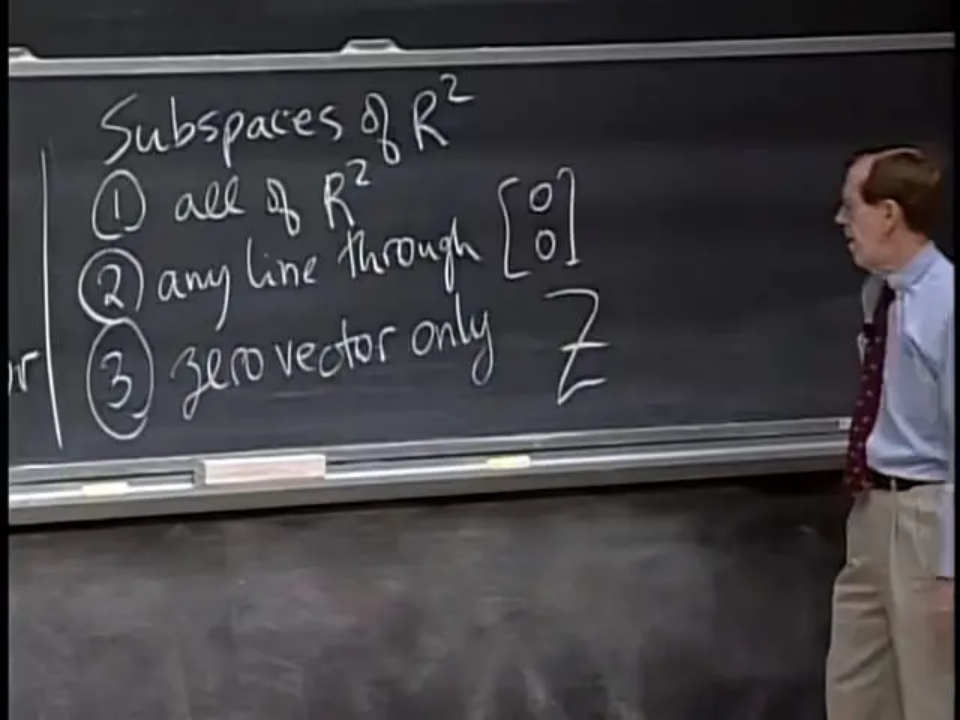 Subspaces of R²
① all of R²
② any line through [0 0]
③ zero vector only Z